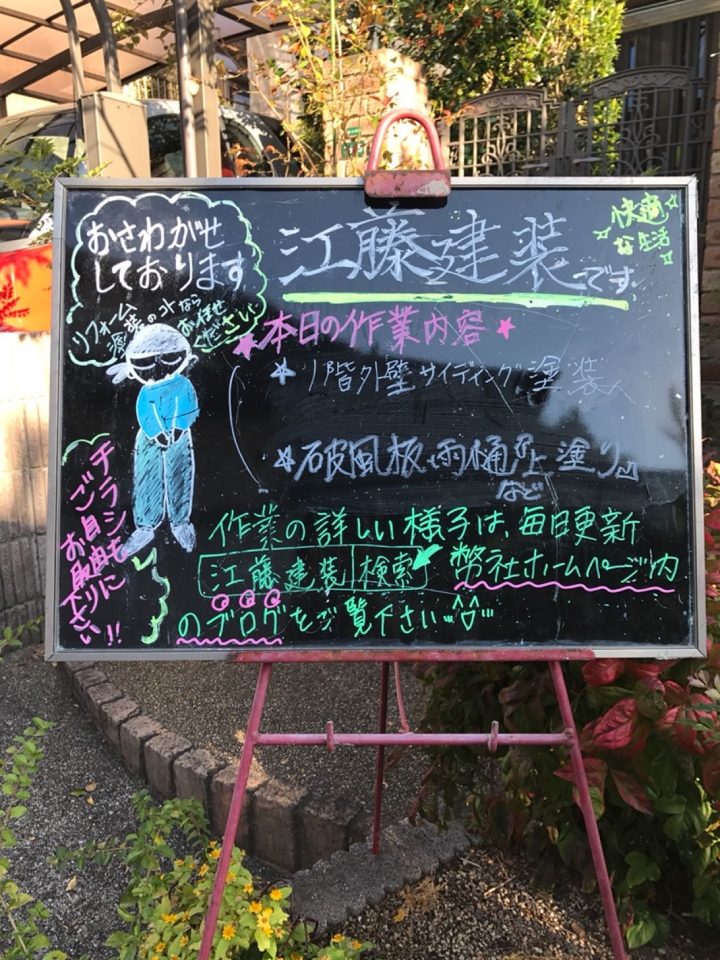 おさわがせ
しております
リフォーム
塗装のコトなら
お任せ
ください
江藤建装です。
快適
な生活
★本日の作業内容★
☆1階外壁サイディング塗装
☆破風板・雨樋 上塗り
など
作業の詳しい様子は、毎日更新
江藤建装 検索 弊社ホームページ内
のブログをご覧下さい
チラシも
ご自由に
お取り
下さい!!